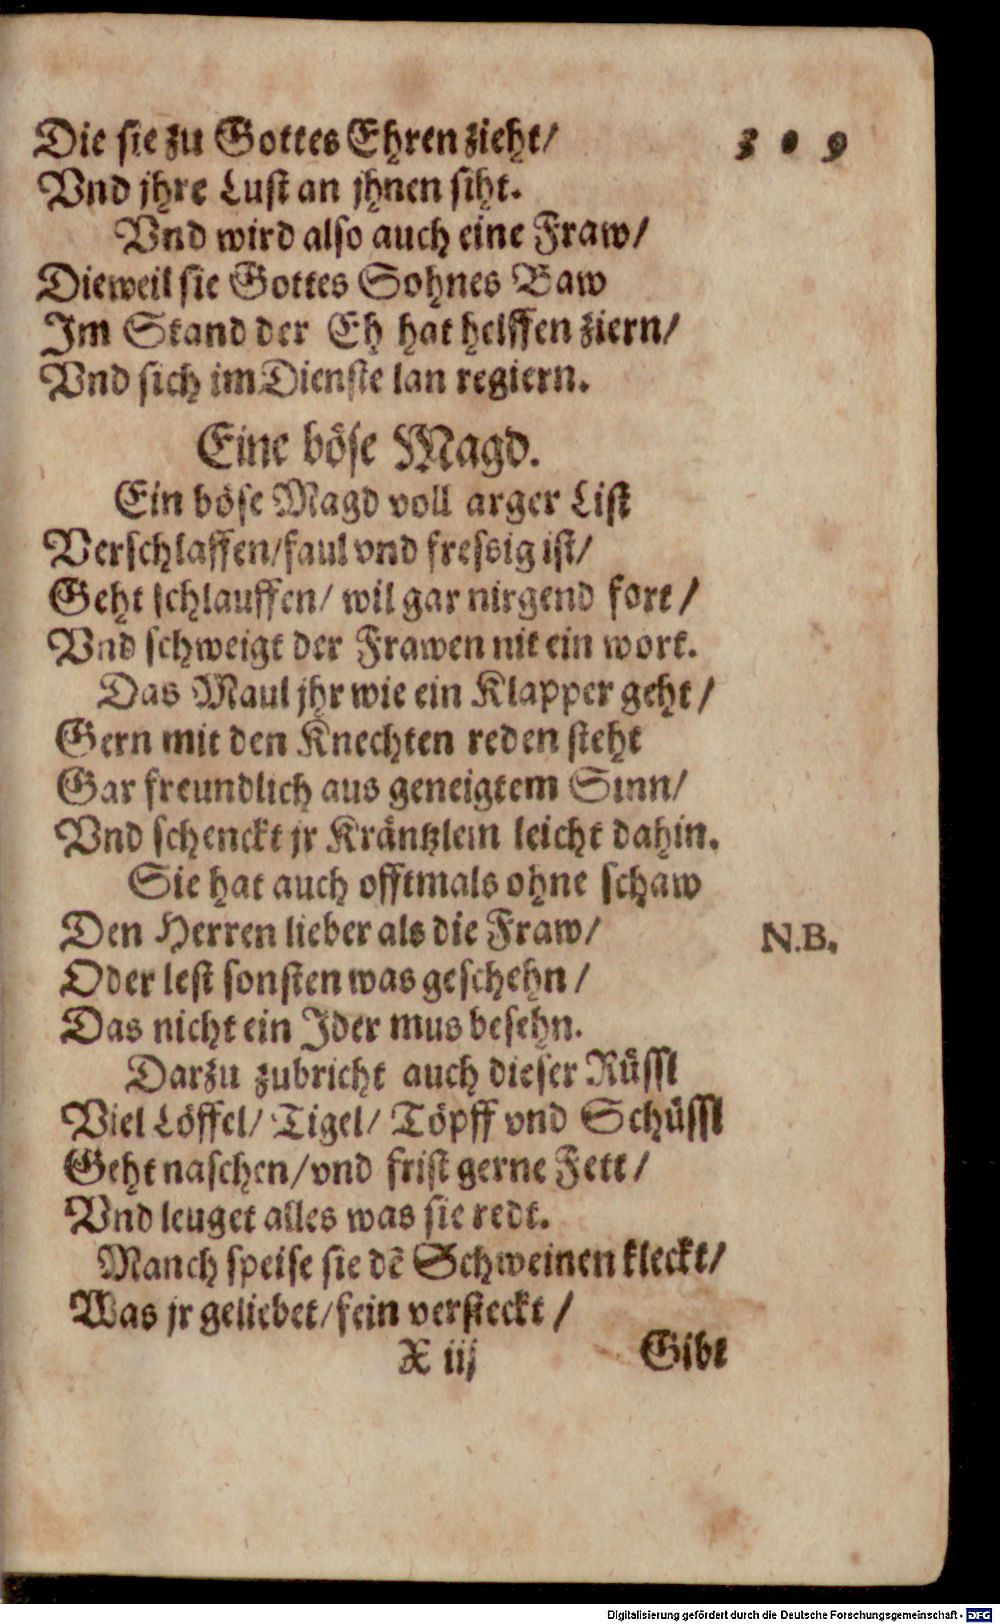 309
Die sie zu Gottes Ehren zieht/
Vnd jhre Lust an jhnen siht.
Vnd wird also auch eine Fraw/
Dieweil sie Gottes Sohnes Baw
Im Stand der Eh hat helffen ziern/
Vnd sich im Dienste lan regiern.
Eine böse Magd.
Ein böse Magd voll arger List
Verschlaffen/faul vnd fressig ist/
Geht schlauffen/ wil gar nirgend fort/
Vnd schweigt der Frawen nit ein wort.
Das Maul jhr wie ein Klapper geht/
Gern mit den Knechten reden steht
Gar freundlich aus geneigtem Sinn/
Vnd schenckt jr Kräntzlein leicht dahin.
Sie hat auch offtmals ohne schaw
Den Herren lieber als die Fraw/ N.B.
Oder lest sonsten was geschehn/
Das nicht ein Jder mus besehn.
Darzu zubricht auch dieser Rüssl
Viel Löffel/ Tigel/ Töpff vnd Schüssl
Geht naschen/vnd frist gerne Fett/
Vnd leuget alles was sie redt.
Manch speise sie dē Schweinen kleckt/
Was jr geliebet/fein versteckt/
X iij Gibt
Digitalisierung gefördert durch die Deutsche Forschungsgemeinschaft - DFG